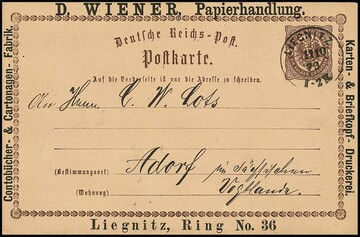 D. WIENER, Papierhandlung.
Contobücher- & Cartonagen-Fabrik.
Karten- & Briefkopf-Druckerei.
Deutsche Reichs-Post.
Postkarte.
LIEGNITZ
Auf die Vorderseite ist nur die Adresse zu schreiben.
An Herrn C. W. Lots
(Bestimmungsort) Adorf im Sächsischen
(Wohnung) Vogtlande.
Liegnitz, Ring No. 36